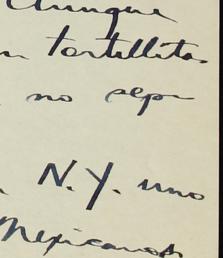 Aunque
tortillitas
no
N.Y. uno
Mexicanos